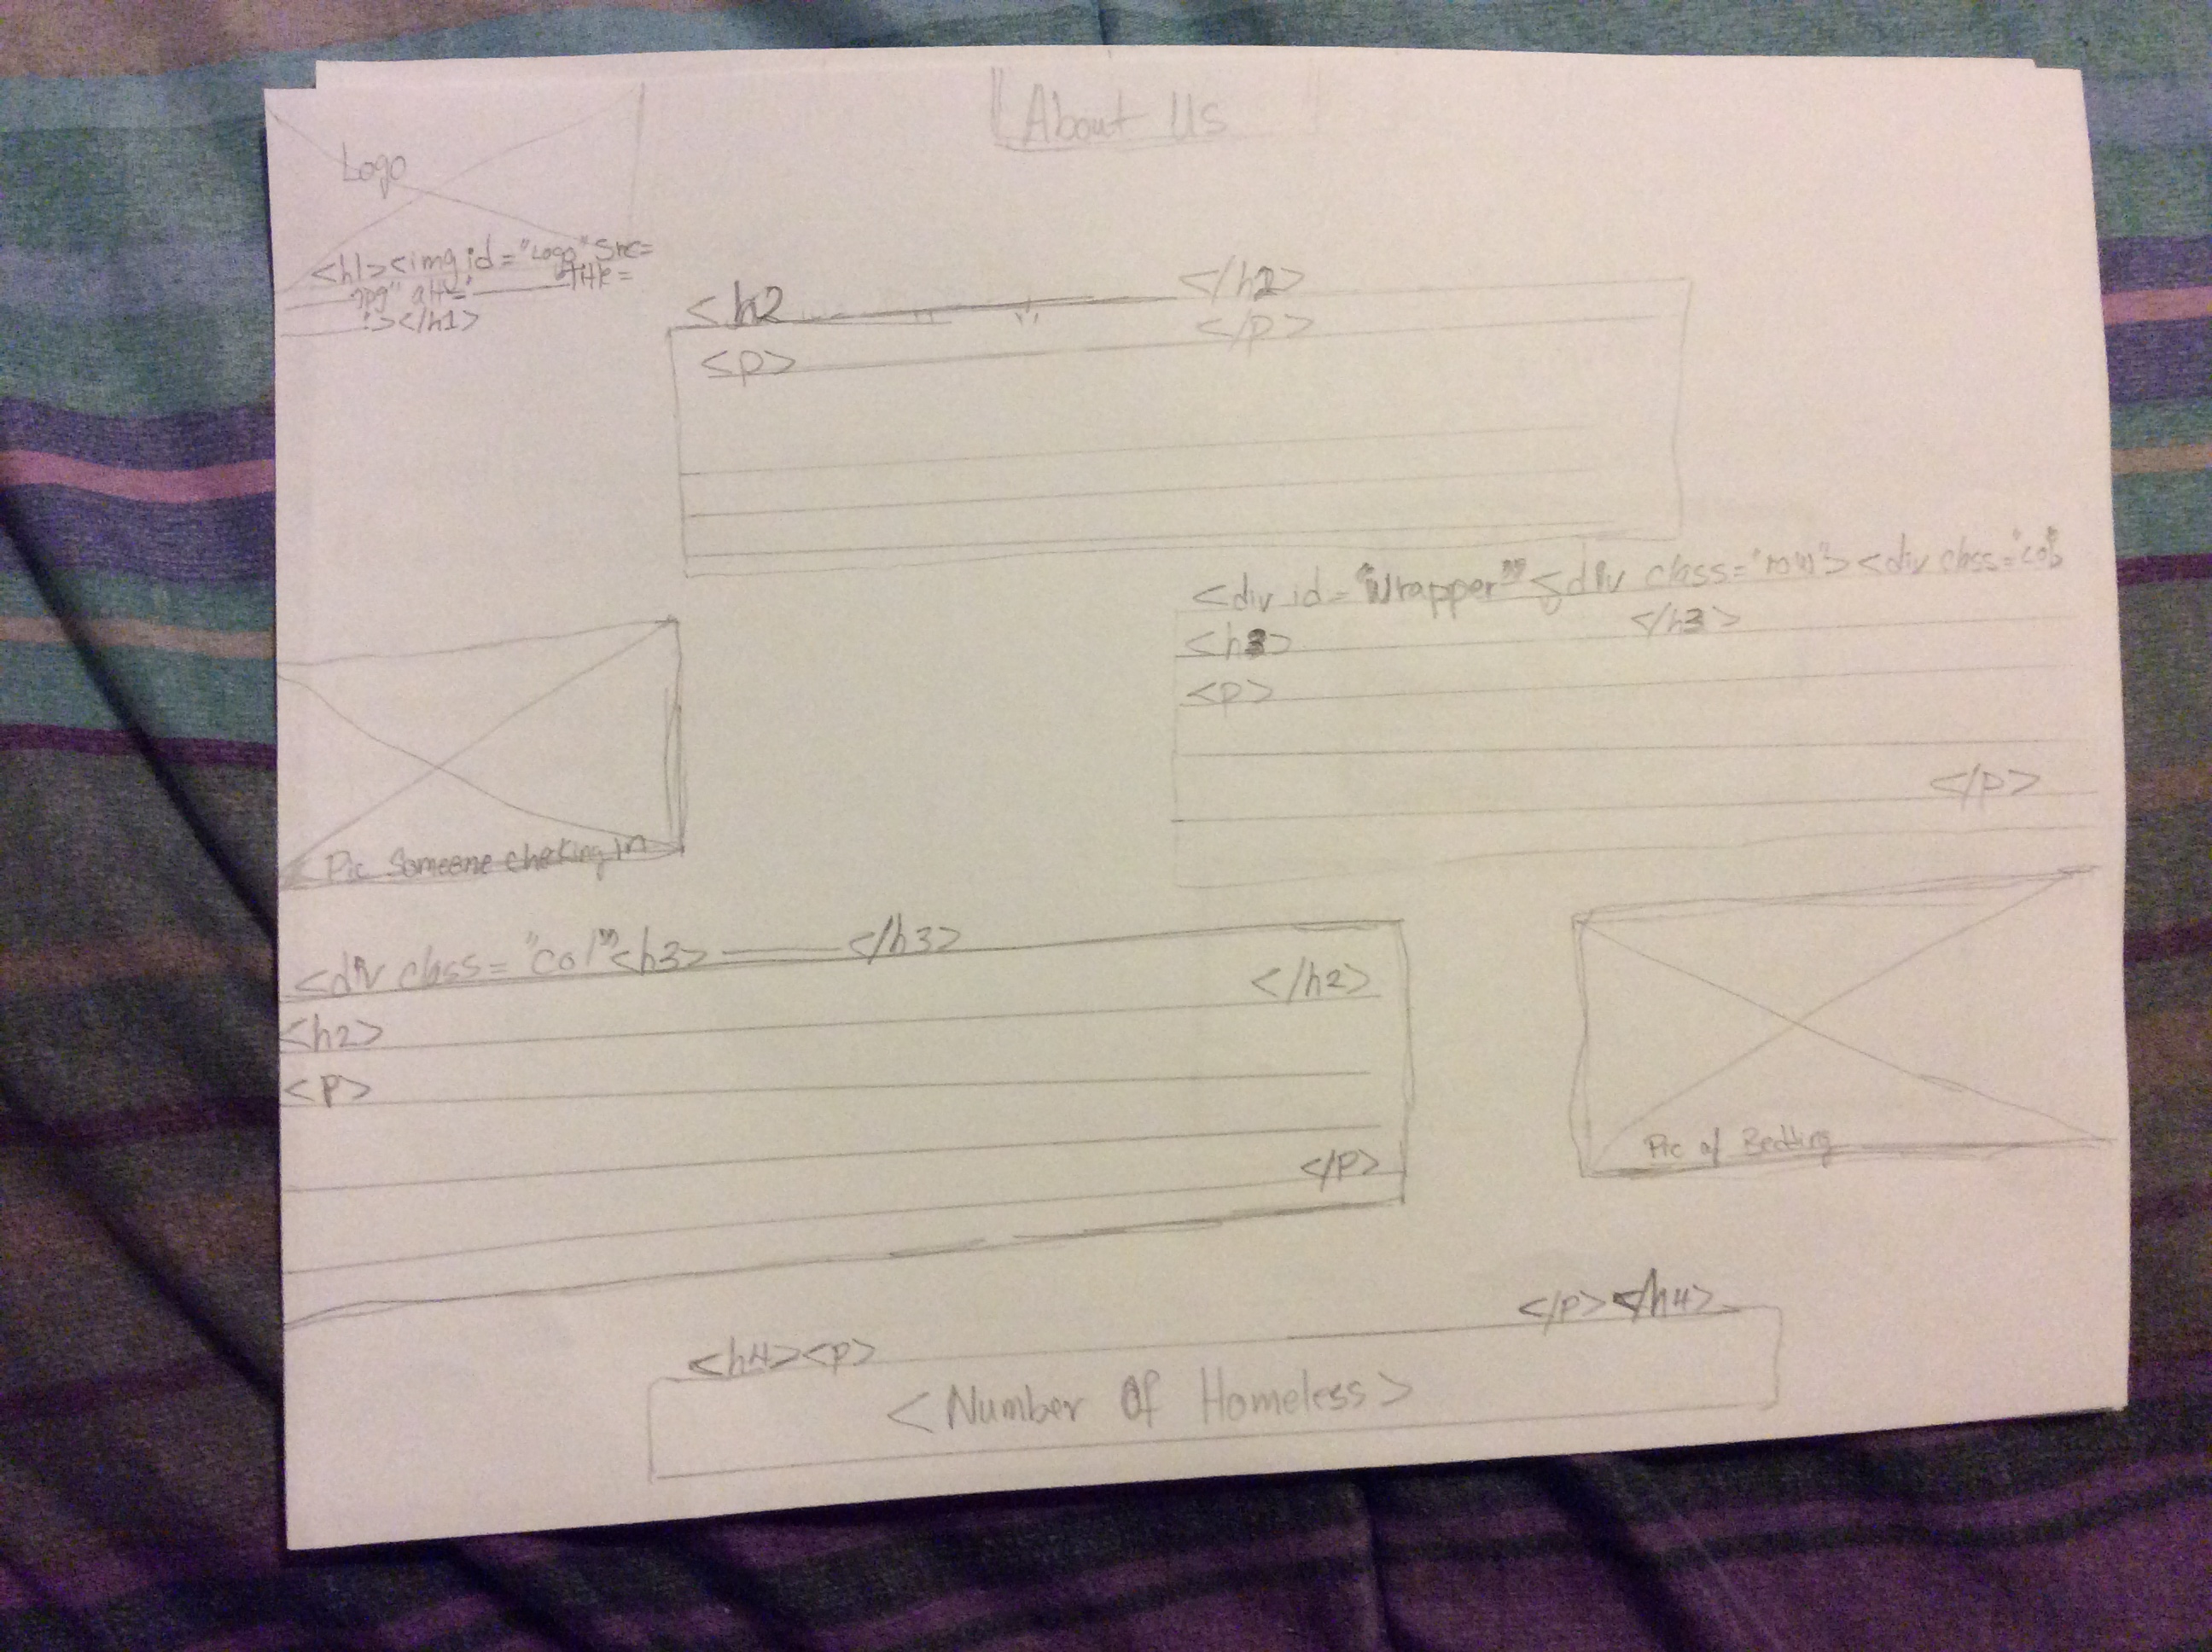 About Us
Logo
<h1><img id="Logo" Src=
jpg" alt=" title=
"></h1>
<h2 </h2>
<p> </p>
<div id="Wrapper"<div class="row"><div class="col"
<h3> </h3>
<p>
</p>
Pic Someone cheking in
<div class="col"<h3> </h3>
</h2>
<h2>
<p>
</p>
Pic of Bedding
<h4><p> </p></h4>
<Number Of Homeless>